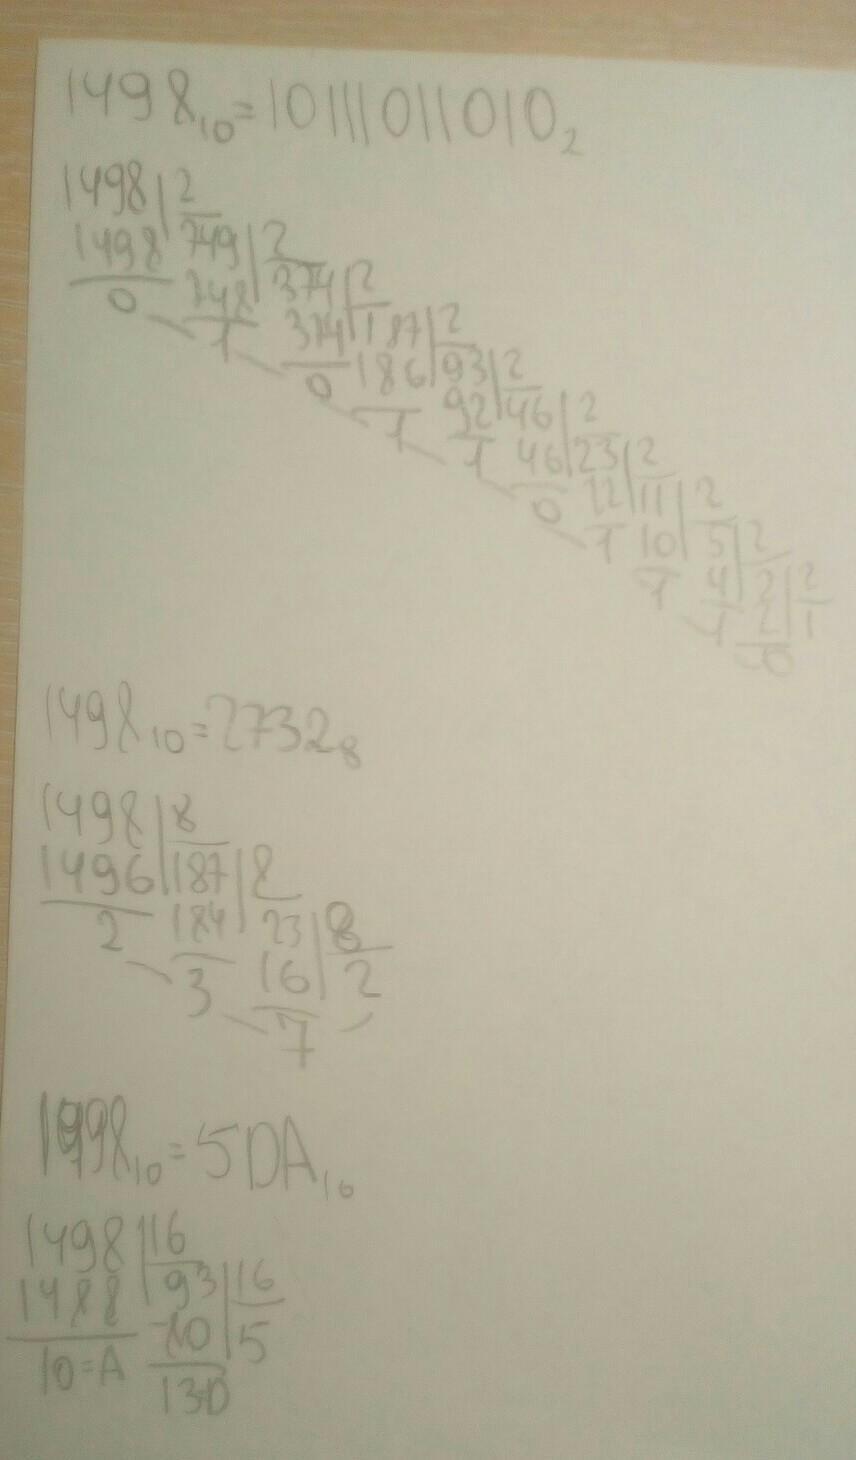 1498₁₀=10111011010₂
1498 2
1498 749 2
0 748 374 2
1 374 187 2
0 186 93 2
1 92 46 2
1 46 23 2
0 22 11 2
1 10 5 2
1 4 2 2
1 2 1
0
1498₁₀=2732₈
1498 8
1496 187 8
2 184 23 8
3 16 2
7
1498₁₀=5DA₁₆
1498 16
1488 93 16
10=A 5
13=D